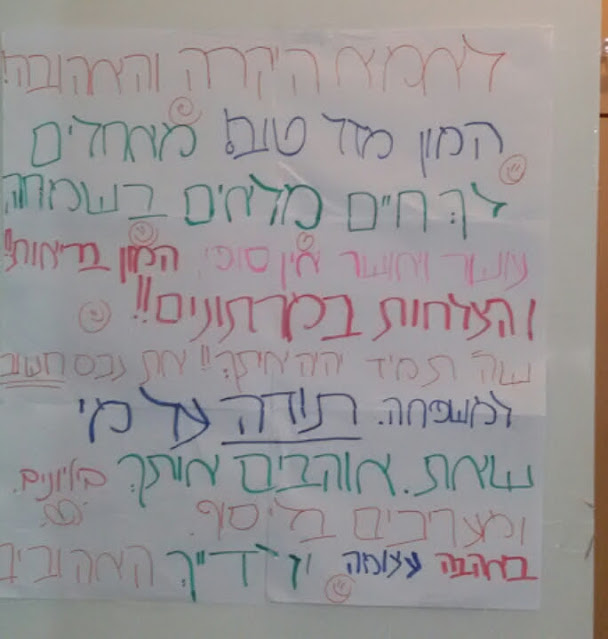 לאמא היקרה והאהובה!
המון מזל טוב! מאחלים
לך חיים מלאים בשמחה
עושר ואושר אין סופי, המון בריאות!!
והצלחות במרתונים!!
שה' תמיד יהיה איתך!! את נכס חשוב
למשפחה. תודה על מי
שאת. אוהבים אותך בליונים.
ומעריכים בלי סוף.
באהבה עצומה ילדייך האהובים